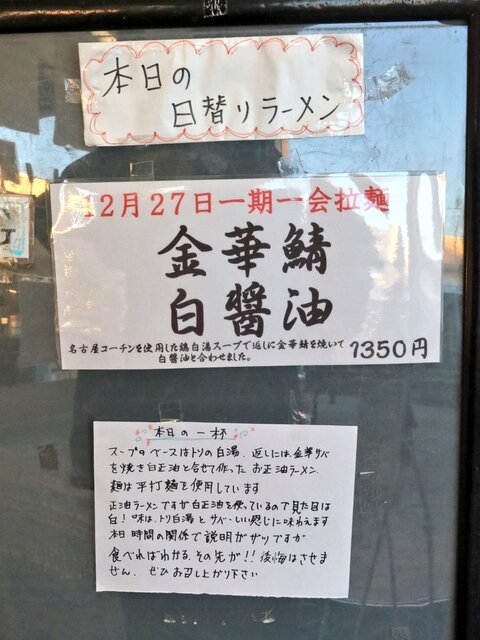 本日の
日替りラーメン
12月27日一期一会拉麺
金華鯖
白醤油
名古屋コーチンを使用した鶏白湯スープで返しに金華鯖を焼いて
白醤油と合わせました。
1350円
本日の一杯
スープのベースはトリの白湯. 返しには、金華サバ
を焼き白正油と合せて作った お正油ラーメン.
麺は平打麺を使用しています
正油ラーメンですが白正油を使っているので見た目は
白! 味は、トリ白湯と サバ・いい感じに味わえます
本日 時間の関係で説明がザツですが
食べればわかる、その先が!! 後悔はさせま
せん. ぜひお召し上がり下さい